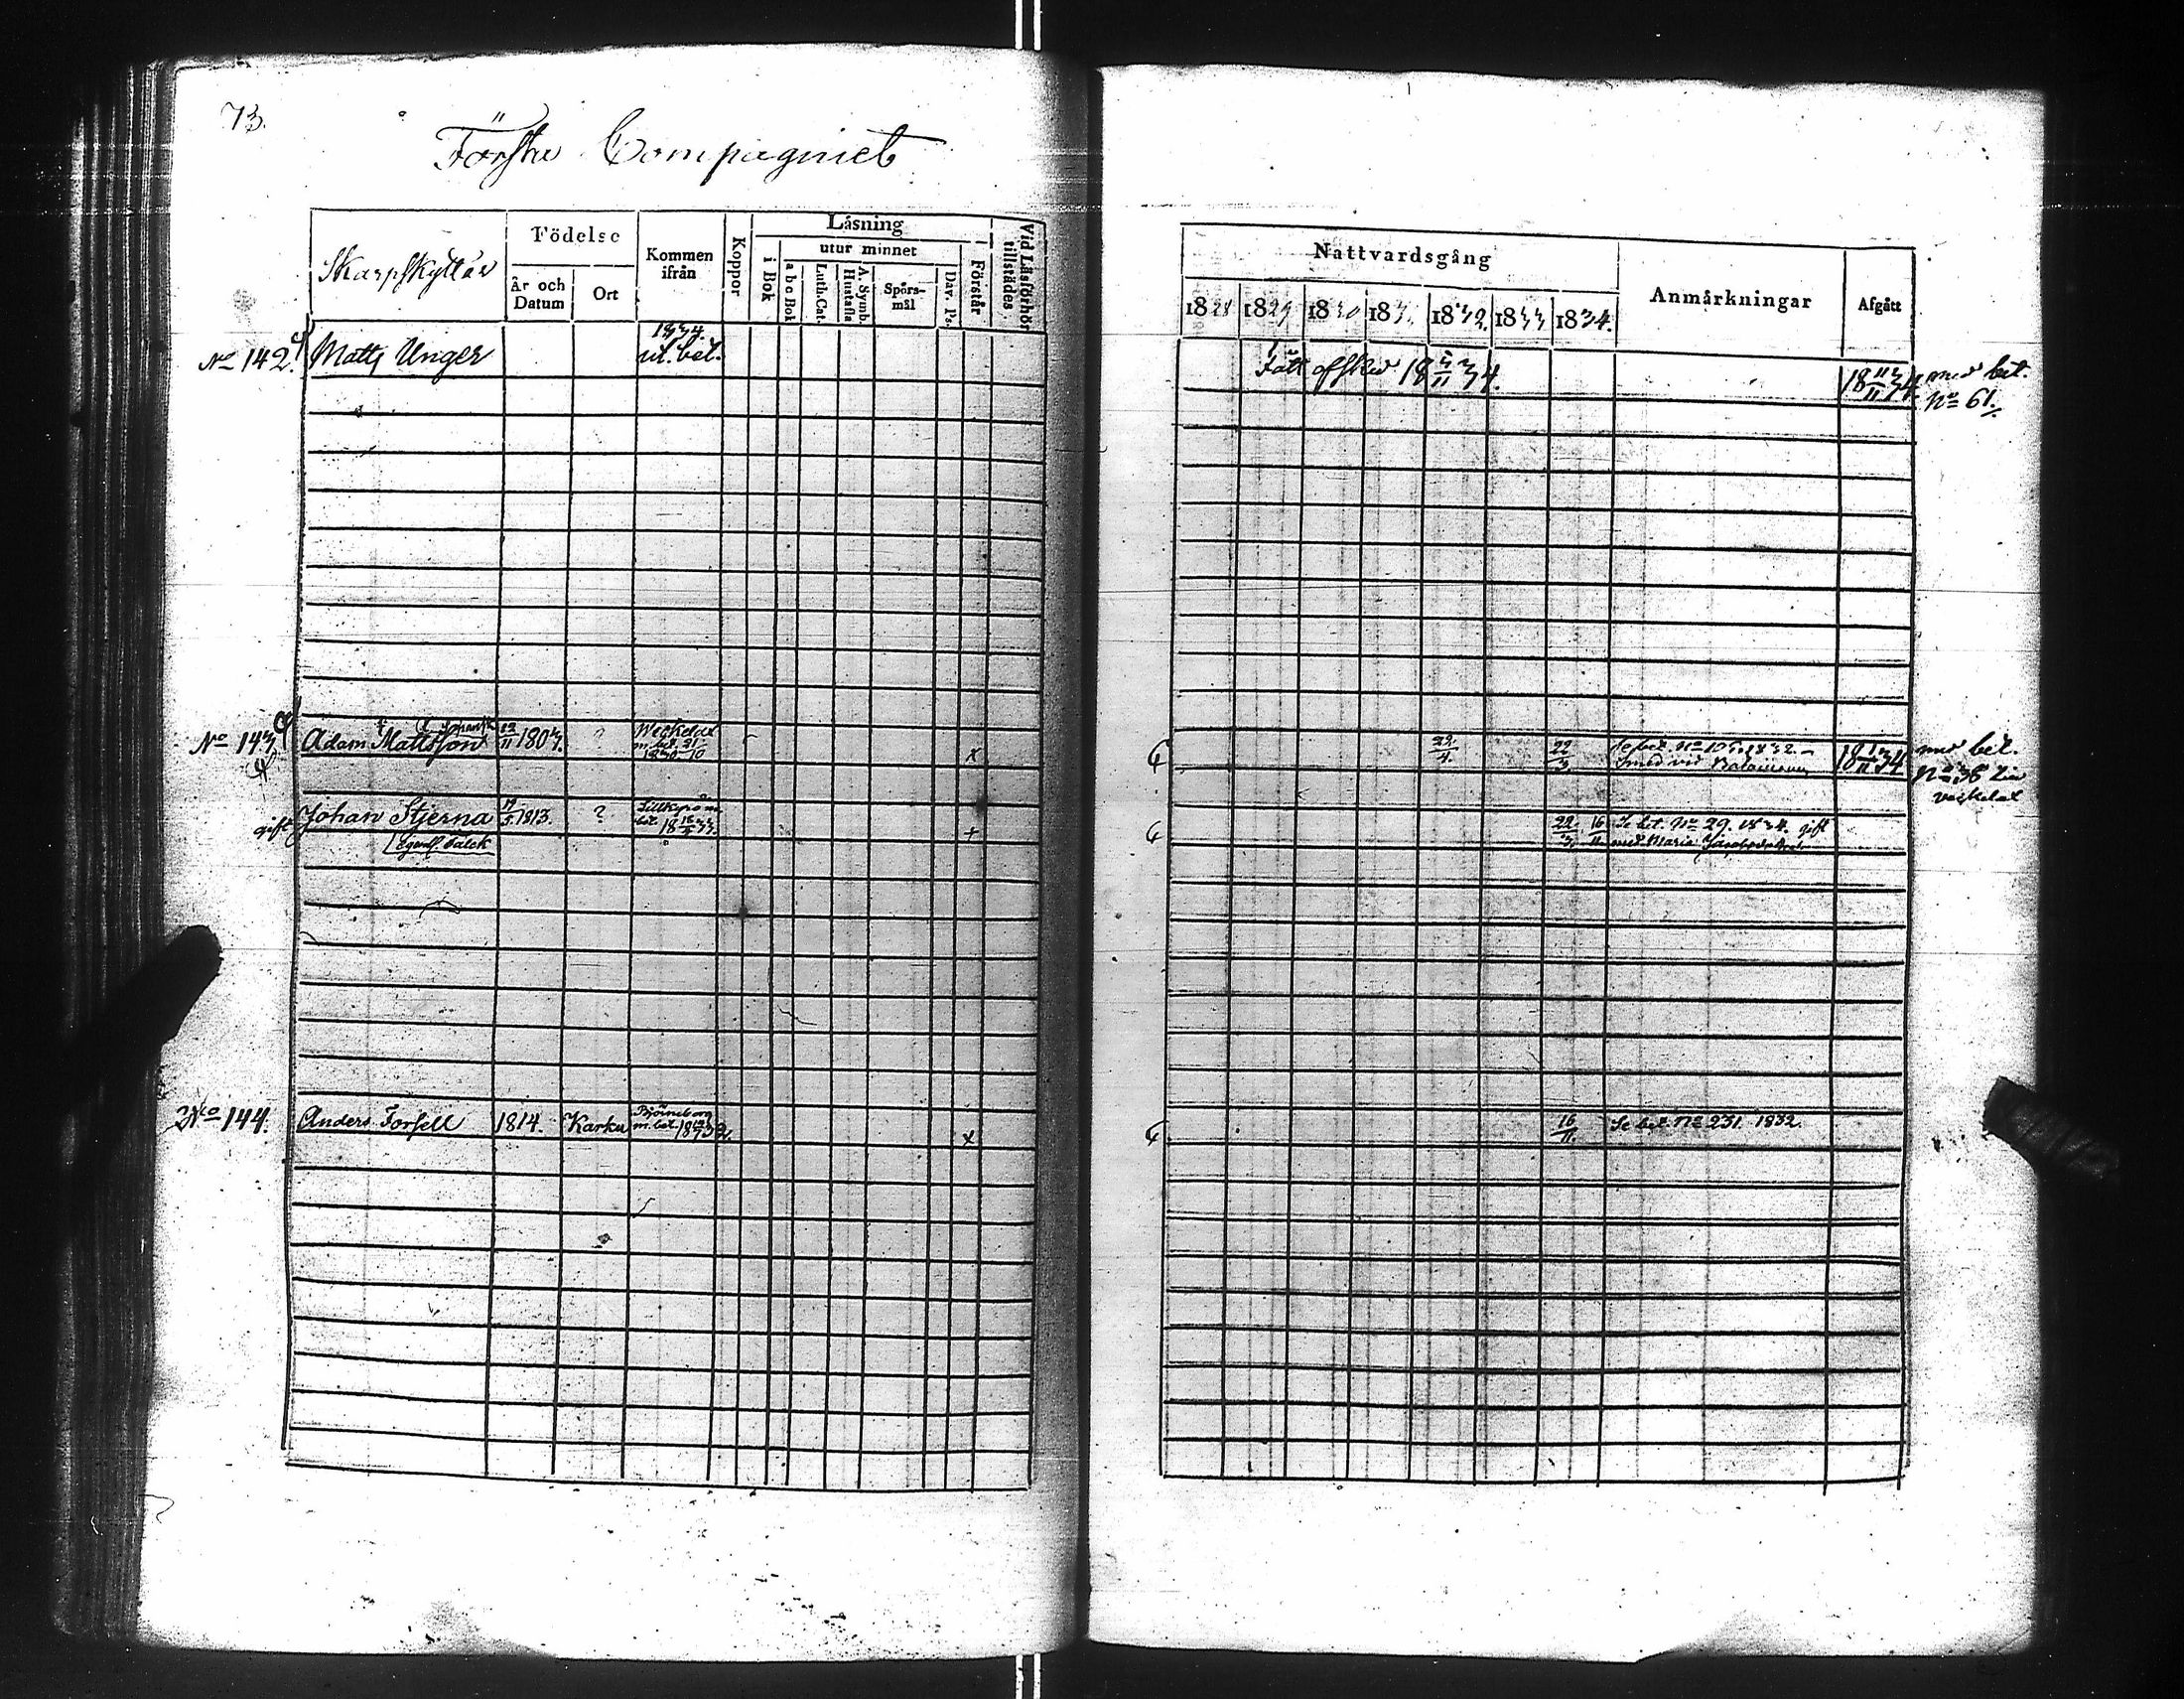 73.
Första Compagniet
Skarpskyttar
Födelse
År och Datum
Ort
Kommen ifrån
Koppor
Läsning
i Bok
utur minnet
a b c Bok
Luth. Cat.
A. Symb. Hustafla
Spörs-mål
Dav. Ps.
Förstår
Vid Läsförhör tillstädes.
Nattvardsgång
1828 1829 1830 183. 1832. 1833 1834.
Anmärkningar
Afgått
No 142. Matts Unger
1834. ut. bet.
Fått afsked 18 /11 34.
18 11/11 34. med bet. No 61.
No 143 Adam Mattsson 12/11 1803. ? Weckelax m. bet. 21/10 1830
x
22/4. 22/3 Se bet. No 106. 1832. –
Smed vid
18 1/11 34 med bet. No 38 till Veckelax
gift Johan Stjerna 19/5 1813. ? bet. 18 33.
egentl. Falck
+
22/3 16/11 Se bet. No 29. 1834. gift
med Maria
No 144. Anders Forsell 1814. Karku Björneborg m. bet. 18 32.
x
16/11. Se bet. No 231. 1832.